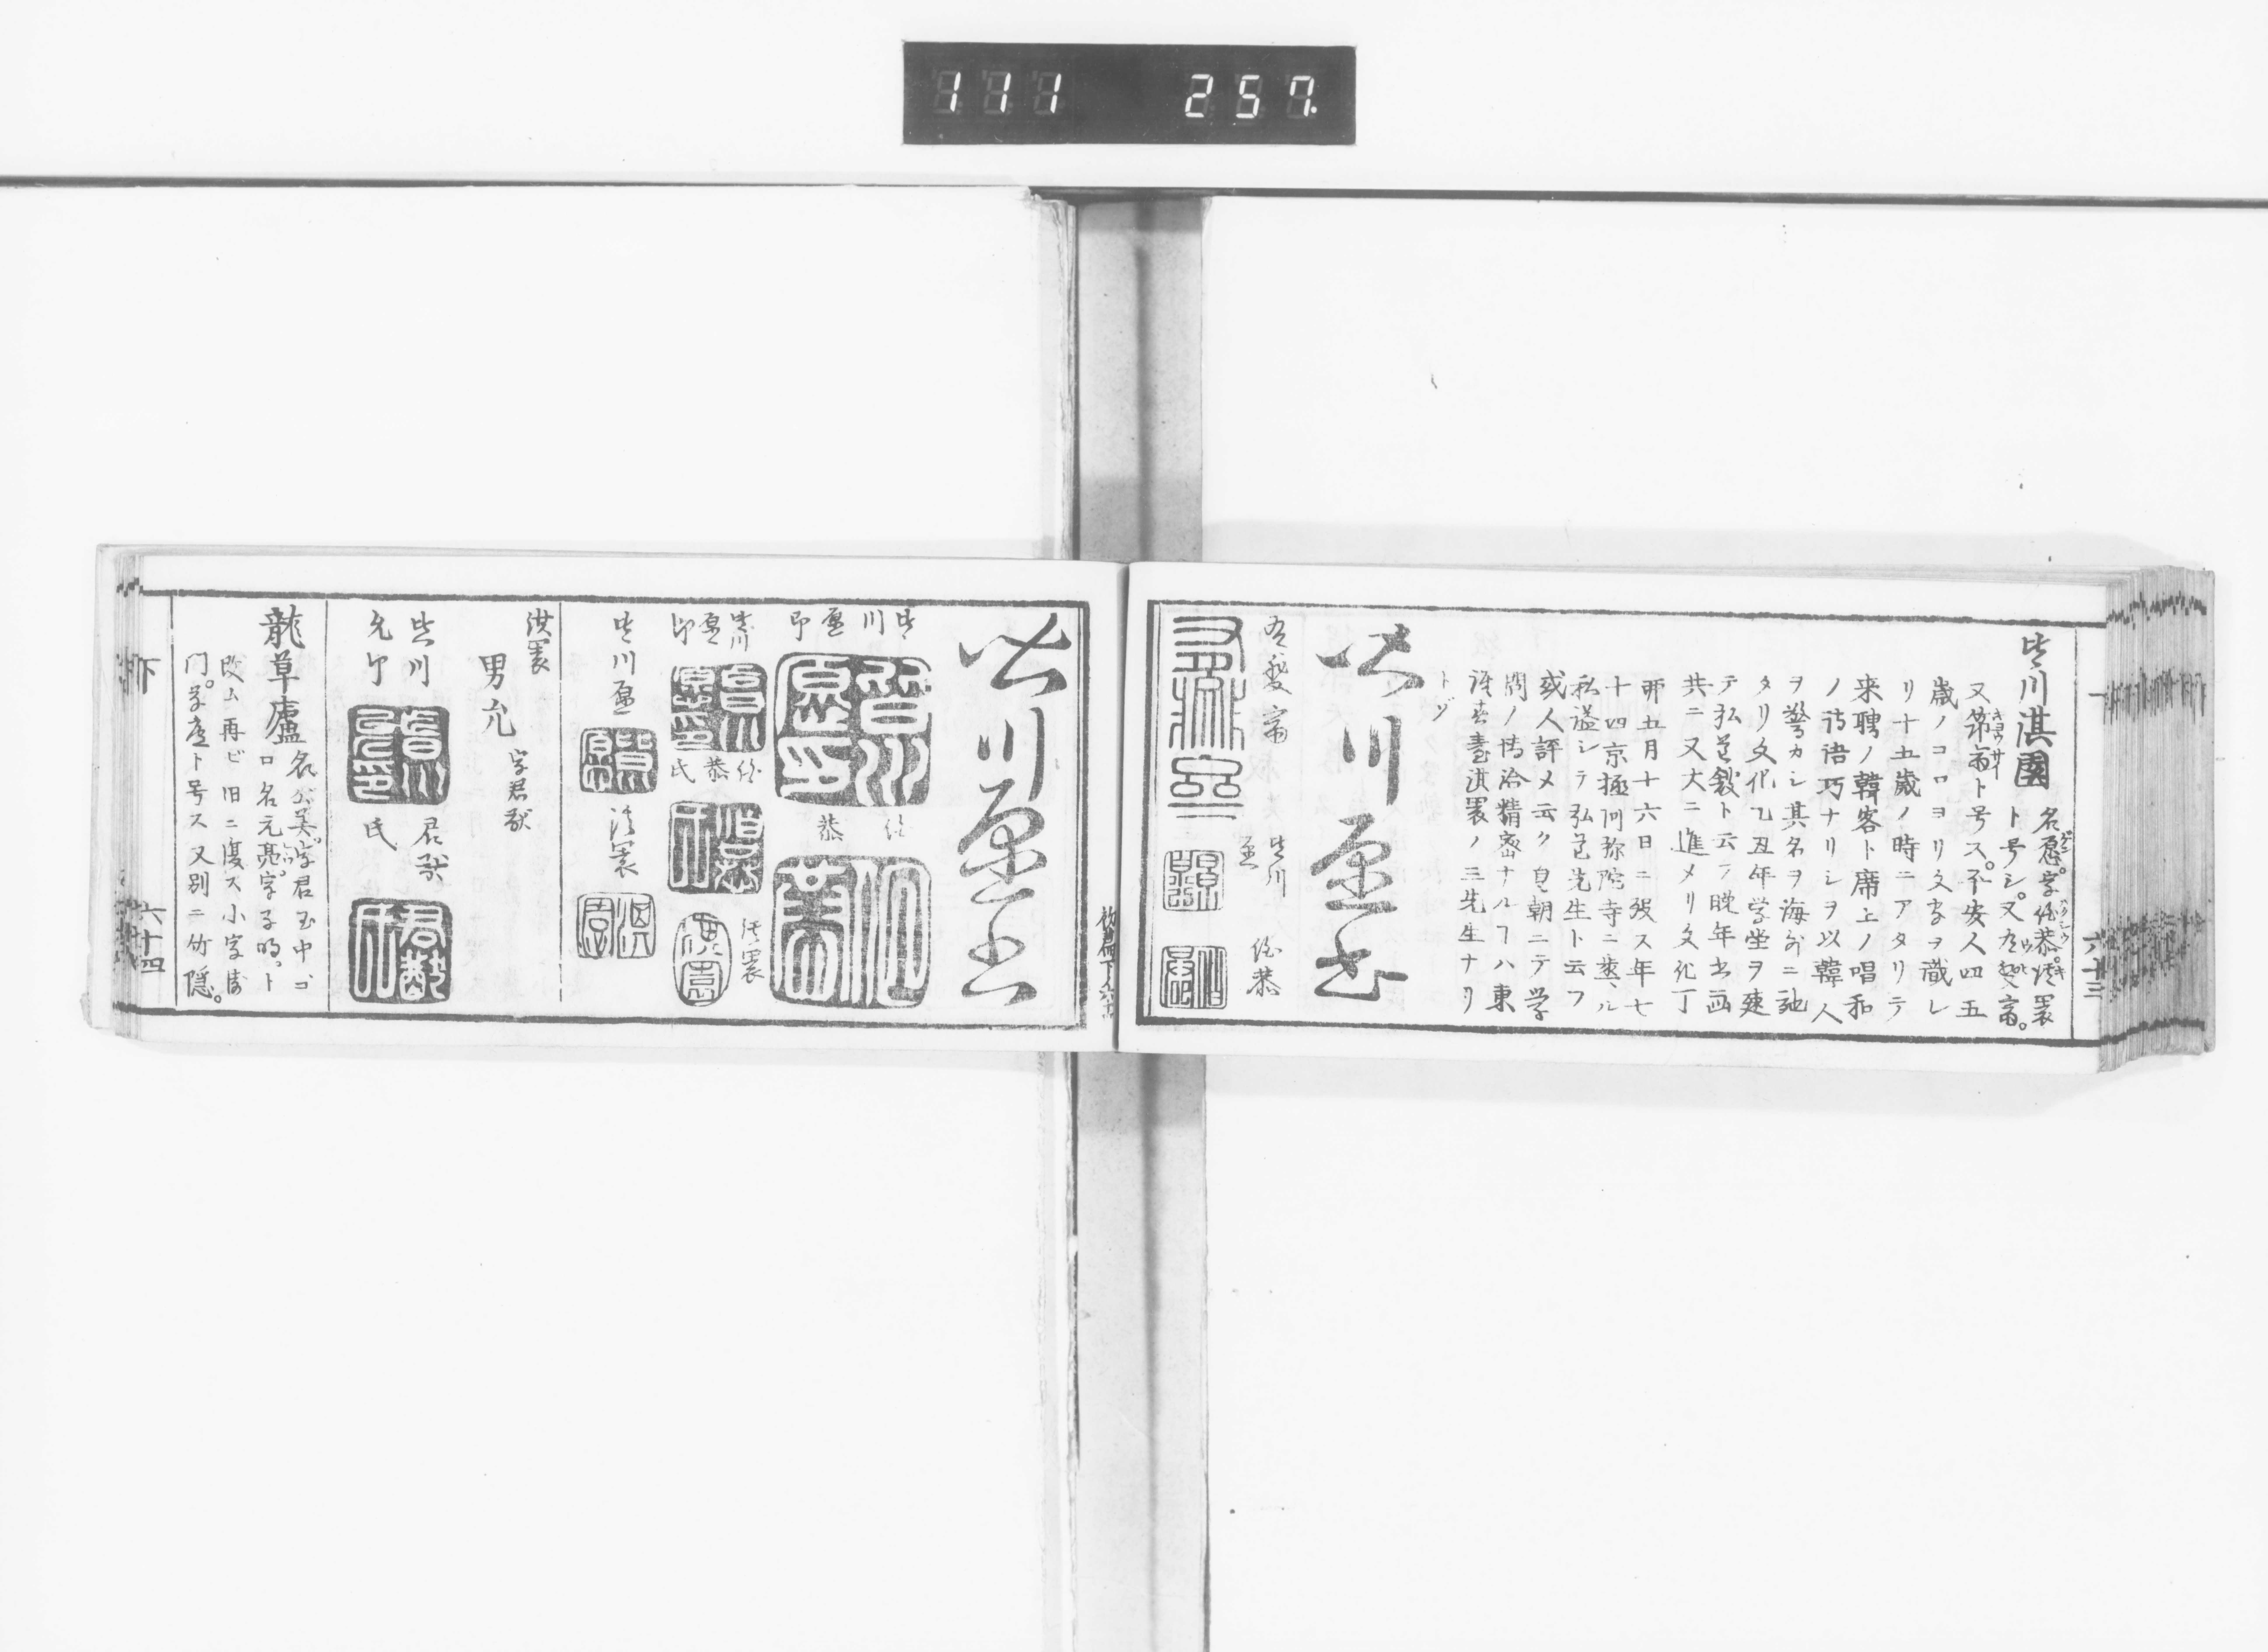 111 257.
六十三
皆川淇園
名愿。字伯恭。淇園
ト号シ。又有斐斎。
又笻斎ト号ス。不安人四五
歳ノコロヨリ文字ヲ識レ
リ十五歳ノ時ニアタリテ
来聘ノ韓客ト席上ノ唱和
ノ詩語巧ナリシヲ以韓人
ヲ驚カシ其名ヲ海外ニ馳
タリ文化乙丑年学堂ヲ建
テ弘道館ト云フ晩年書画
共ニ又大ニ進メリ文化丁
卯五月十六日ニ歿ス年七
十四京極阿弥陀寺ニ葬ル
私謚シテ弘道先生ト云フ
或人評メ云ク皇朝ニテ学
問ノ博洽精密ナルヿハ東
涯春臺淇園ノ三先生ナリ
トゾ
皆川愿書
有斐斎
皆川
愿
伯恭
皆川愿書
皆川
愿印
伯
恭
皆川
愿印
伯恭
氏
淇園
皆川愿
淇園
淇園
男允
字君猷
皆川
允印
君猷
氏
龍草廬
名公美。字君玉中ゴ
ロ名元亮。字子明。ト
改ム再ビ旧ニ復ス小字衛
门。草廬ト号ス又別ニ竹隠。
下
六十四